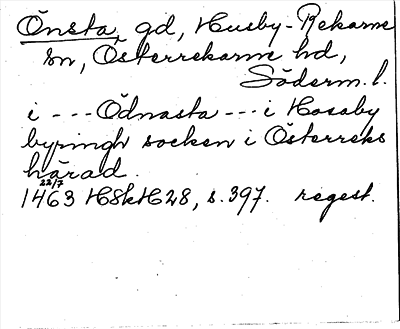 Önsta, gd, Husby-Rekarne
sn, Österrekarne hd,
Söderm. l.
i --- Ödnasta --- i Hosaby
bypingh socken i Österreks
härad.
22/7
1463 HSkH28, s. 397. regest.